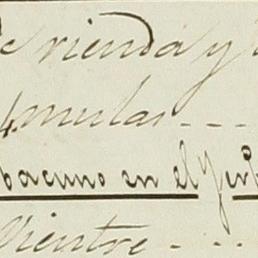 de rienda y
4 mulas
bacuno en el
Vientre